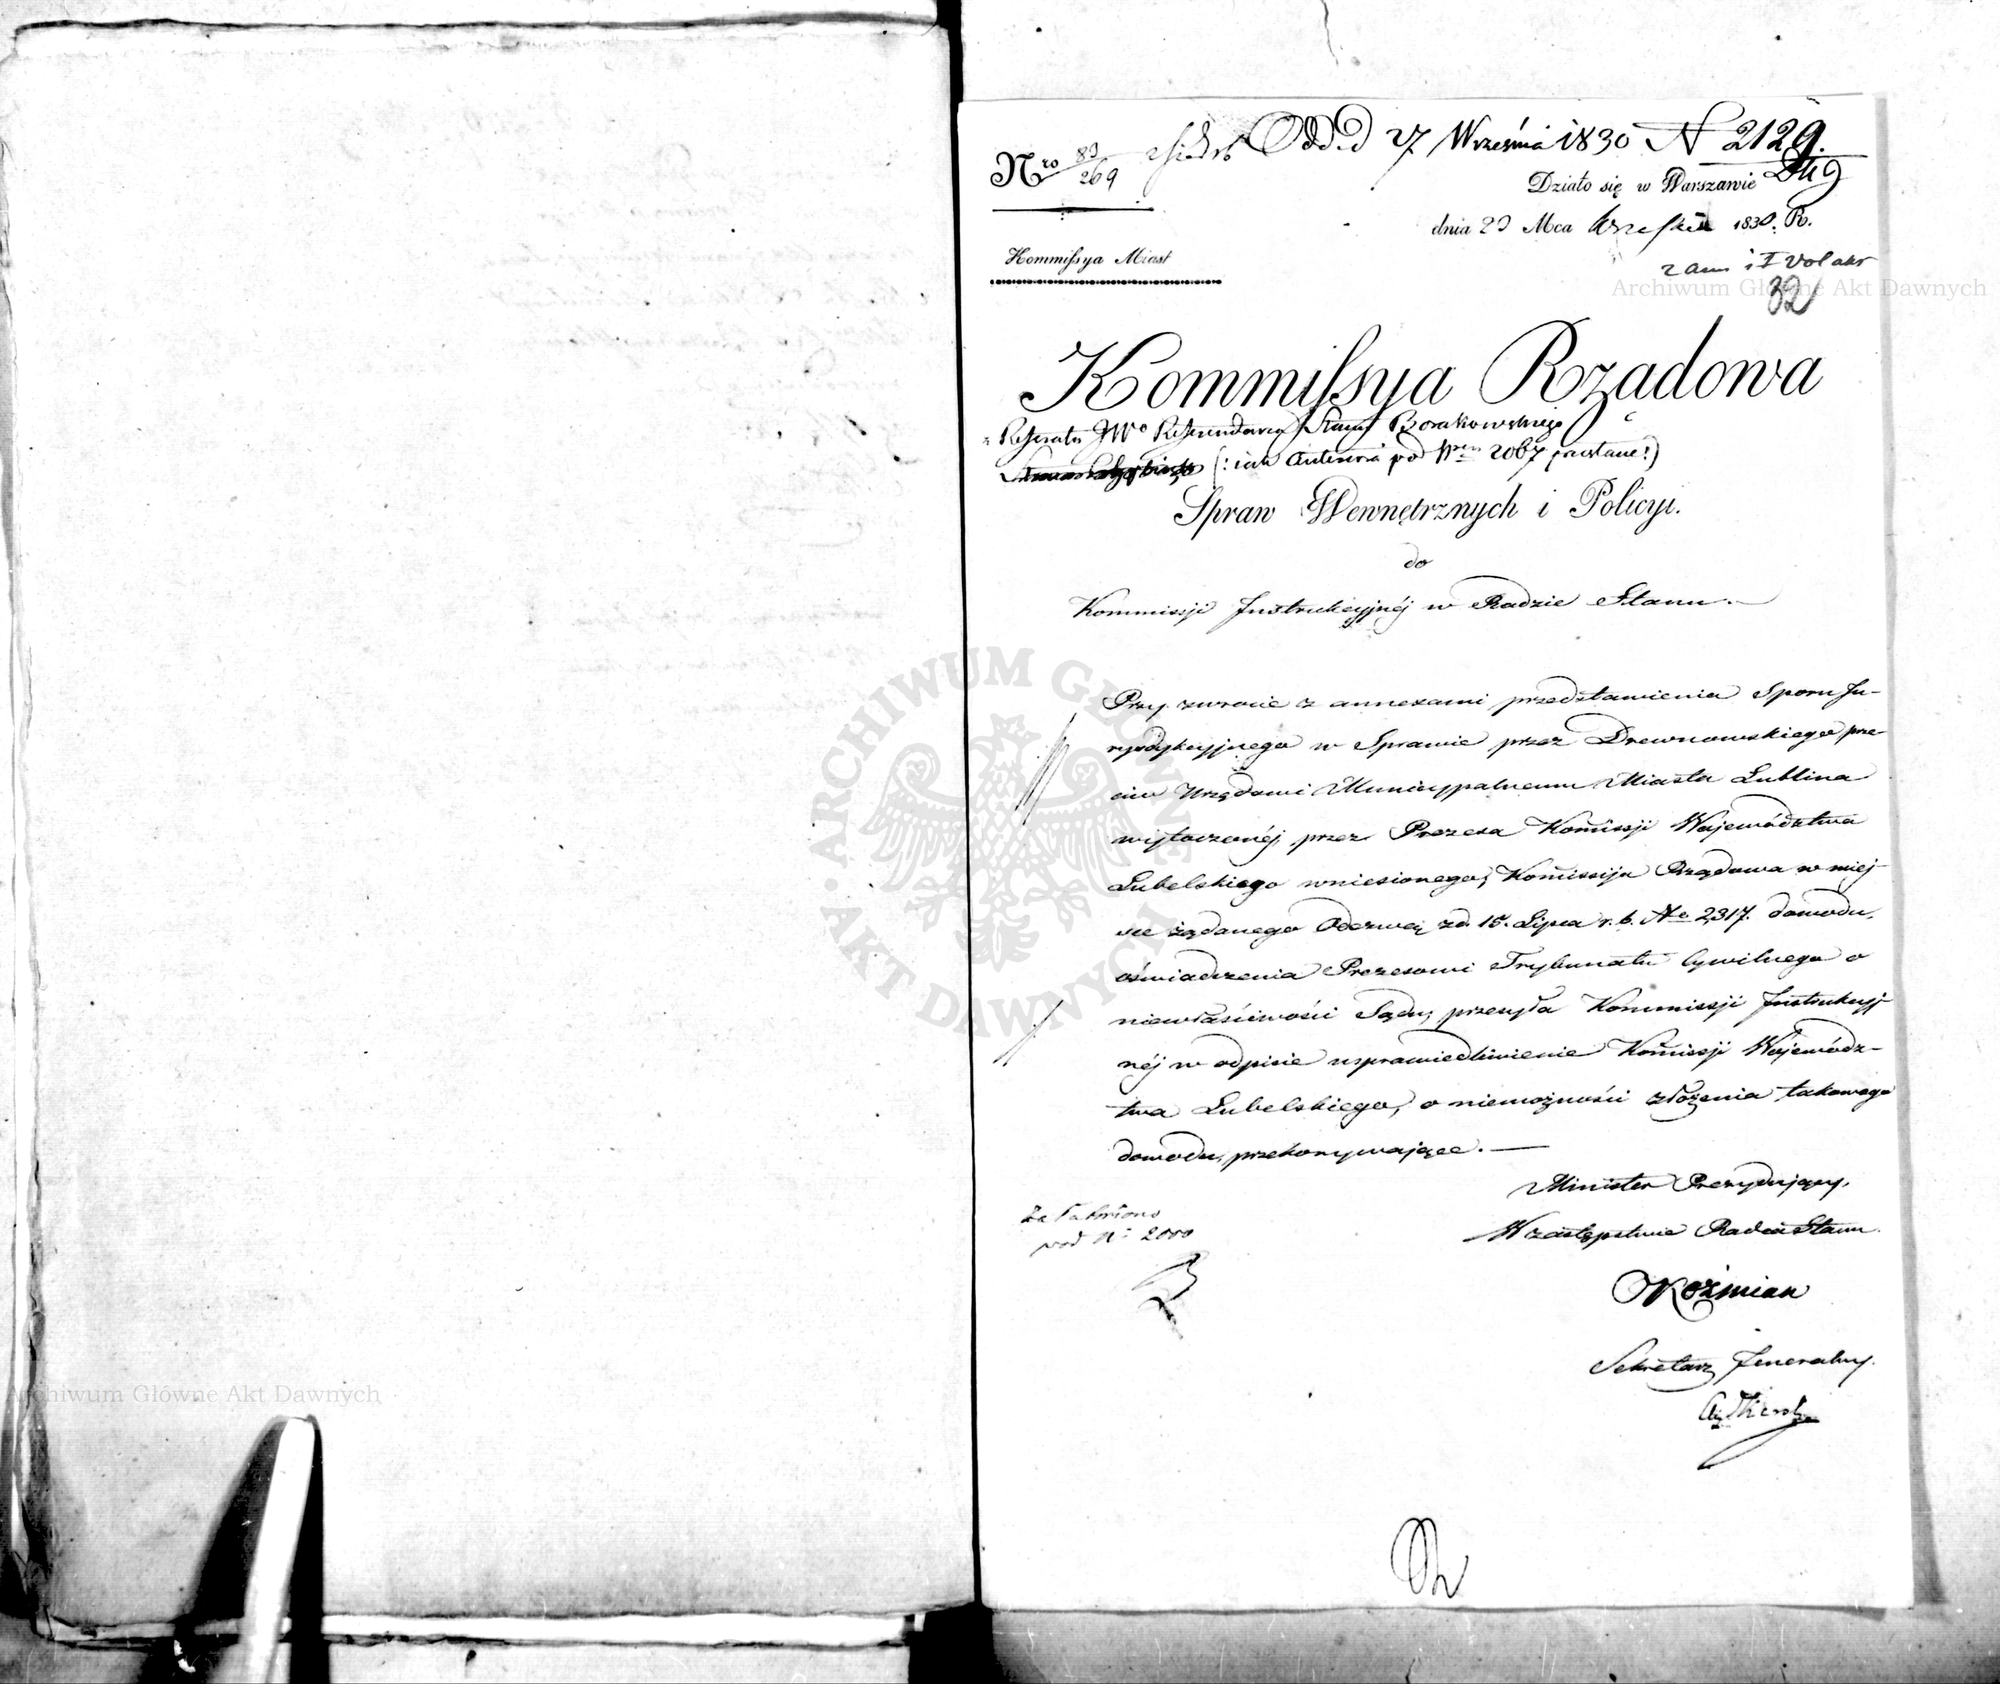 Odd. d 27 Września 1830 N 2129.
Nro 83/269
Działo się w Warszawie
dnia 23 Mca Września 1830. R.
Kommissya Miast
z ann i I Vol akt
32
Kommissya Rządowa
Referatu JWo Referendarza Stanu Borakowskiego
(: jak Anteriora pod Nrem 2067 :)
Spraw Wewnętrznych i Policyi.
do
Kommissji Instrukcyjnéj w Radzie Stanu. —
Przy zwrocie z annexami przedstawienia Sporu Ju-
rysdykcyjnego w Sprawie przez Drewnowskiego prze-
ciw Urzędowi Municypalnemu Miasta Lublina
wytoczonéj, przez Prezesa Kom̃issji Województwa
Lubelskiego wniesionego, Kom̃issija Rządowa w miej-
sce żądanego Odezwą z d. 15. Lipca r. b. No 2317. dowodu,
oświadczenia Prezesowi Trybunału Cywilnego o
niewłaściwości Sądu, przesyła Kommissji Instrukcyj-
néj w odpisie usprawiedliwienie Kom̃issji Wojewódz-
twa Lubelskiego, o niemożności złożenia takowego
dowodu, przekonywające. —
Minister Prezydujący,
W zastępstwie Radca Stanu
Koźmian
Załatwiono
pod No 2000
Sekretarz Jeneralny.
Archiwum Główne Akt Dawnych
Archiwum Główne Akt Dawnych
ARCHIWUM GŁÓWNE · AKT DAWNYCH ·